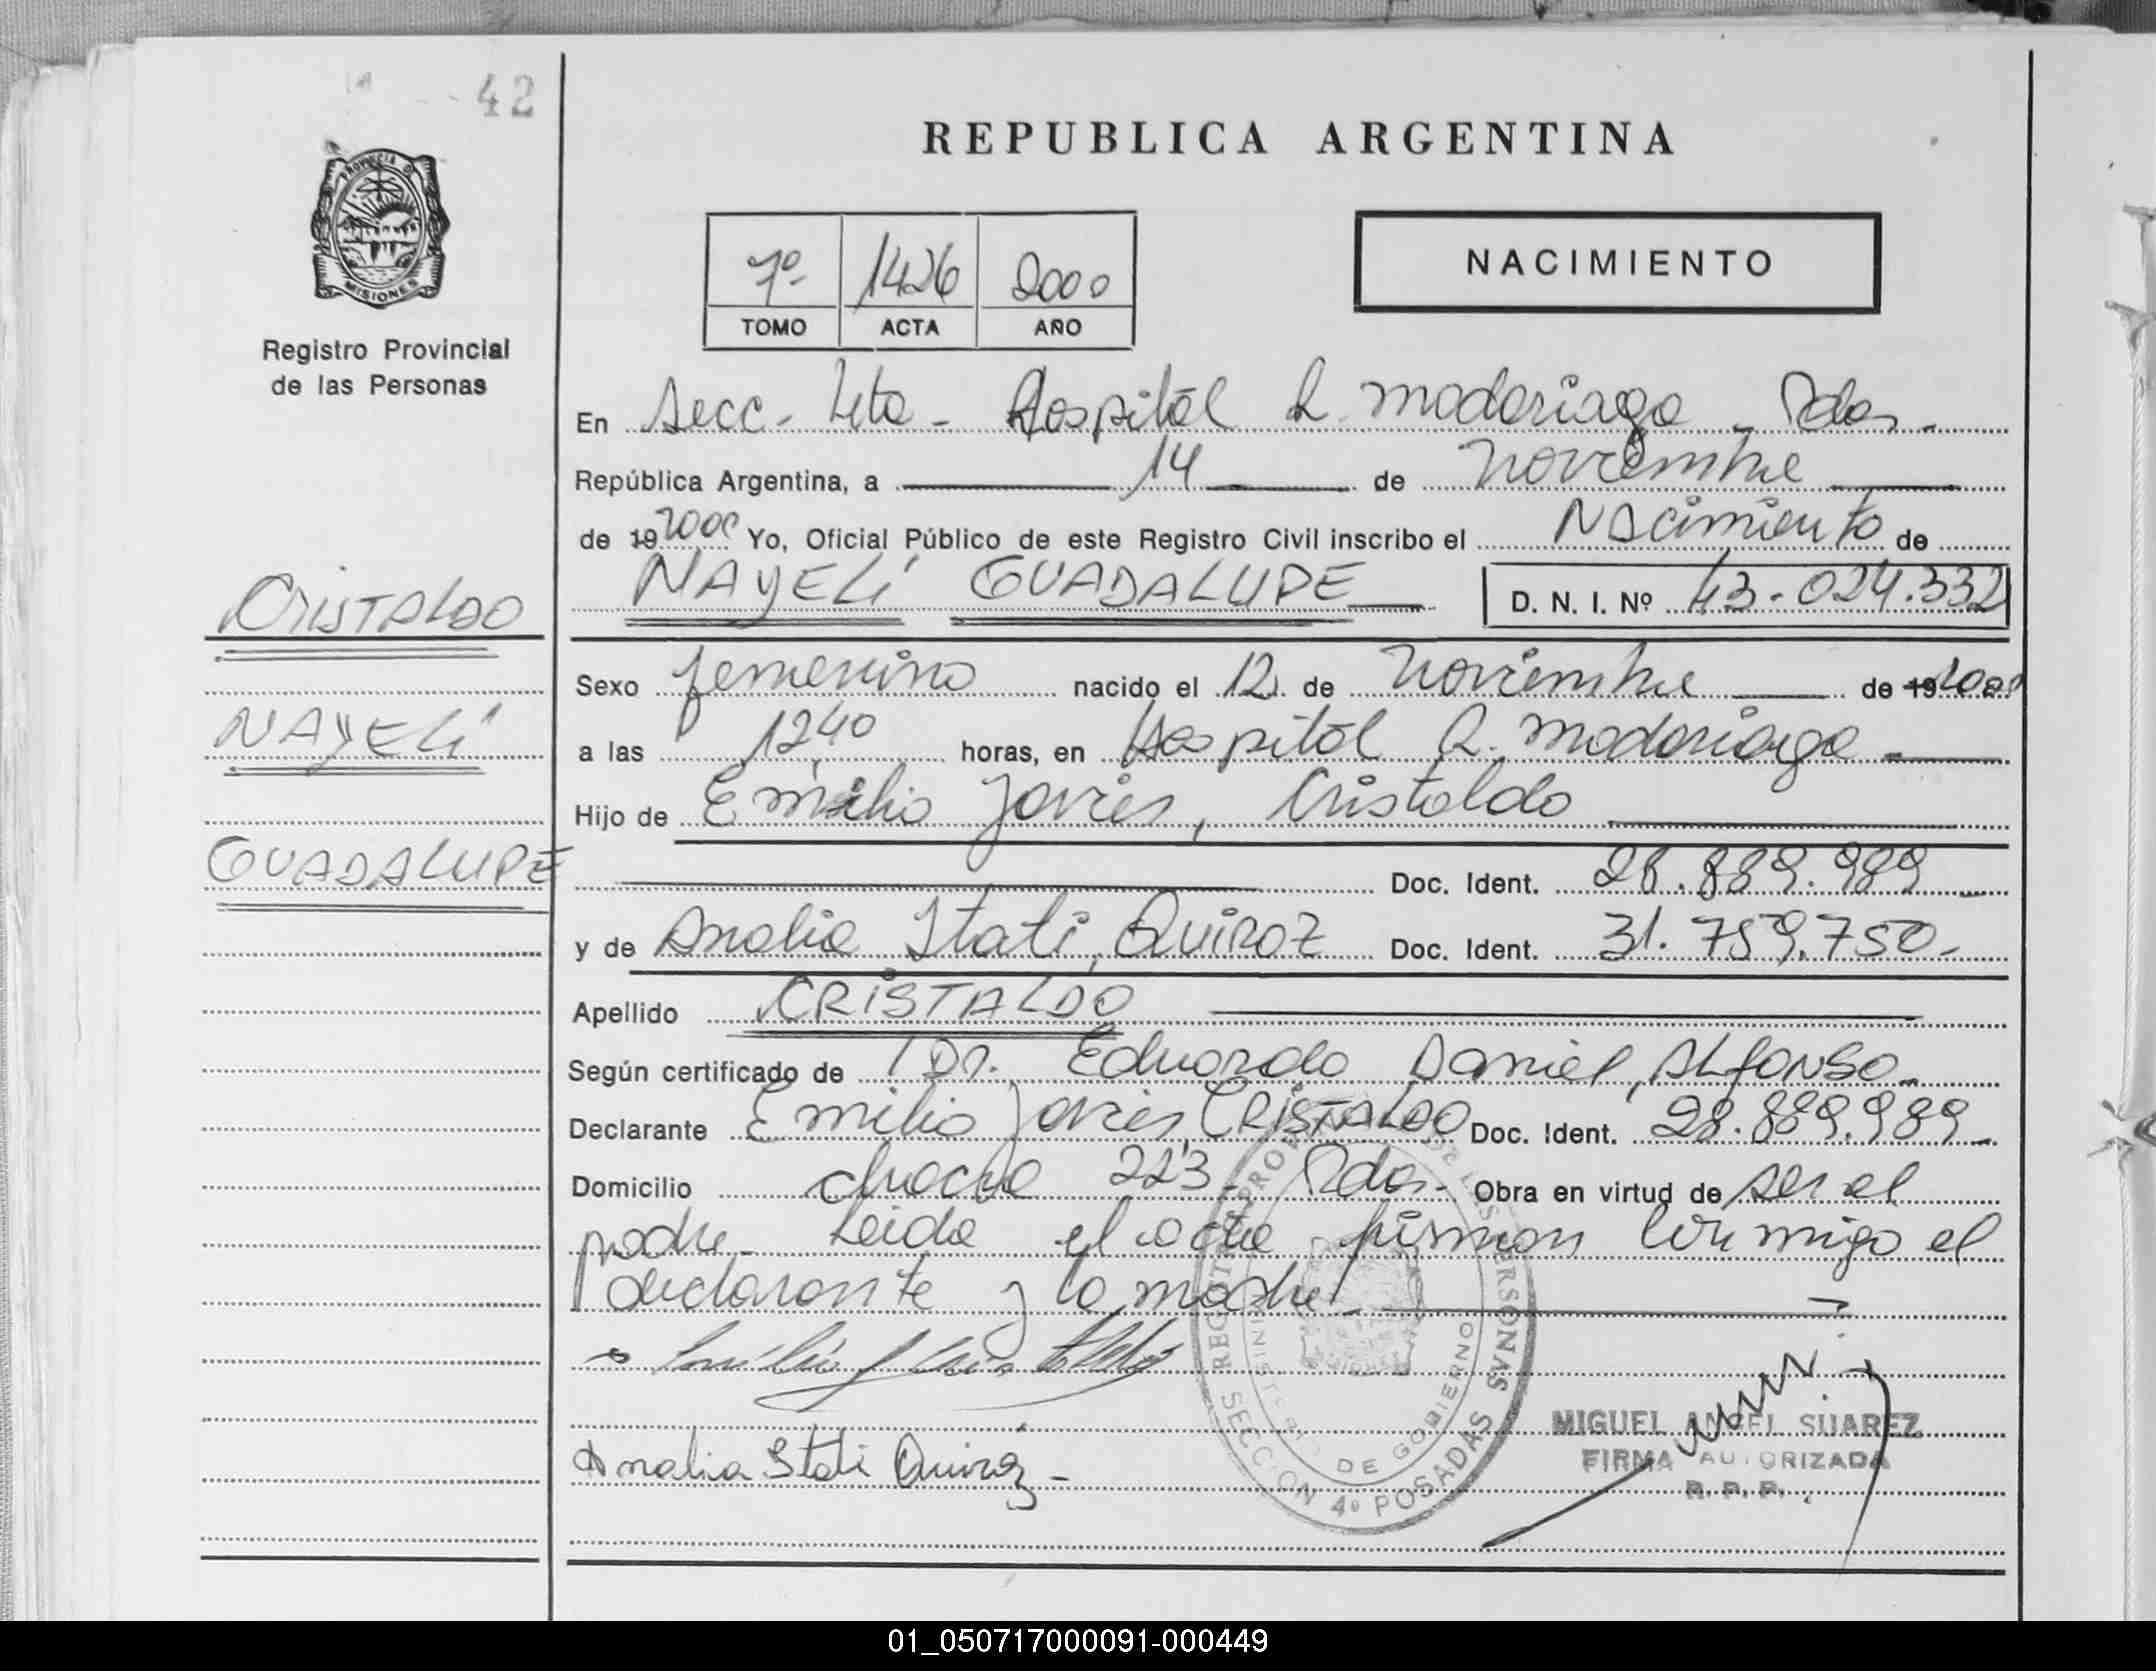 42
REPUBLICA ARGENTINA
PROVINCIA DE
MISIONES
Registro Provincial
de las Personas
7º 1426 2000
TOMO ACTA AÑO
NACIMIENTO
En Secc. 4ta - Hospital R. Madariaga - Pdas.
República Argentina, a 14 de Noviembre
de 19 2000 Yo, Oficial Público de este Registro Civil inscribo el Nacimiento de
NAYELÍ GUADALUPE D. N. I. Nº 43.024.332
CRISTALDO
NAYELÍ
GUADALUPE
Sexo femenino nacido el 12 de Noviembre de 19 2000
a las 12,40 horas, en Hospital R. Madariaga
Hijo de Emilio Javier, Cristaldo
Doc. Ident. 28.889.989
y de Analia Itati, Quiroz Doc. Ident. 31.759.750-
Apellido CRISTALDO
Según certificado de Dr. Eduardo Daniel, ALFONSO
Declarante Emilio Javier, CRISTALDO Doc. Ident. 28.889.989
Domicilio chacra 223 - Pdas. Obra en virtud de ser el
padre. Leida el acta firman conmigo el
declarante y la madre.
Analia Itati Quiroz -
MIGUEL ANGEL SUAREZ
FIRMA AUTORIZADA
R. P. P.
SECCION 4º POSADAS
MINISTERIO DE GOBIERNO
01_050717000091-000449